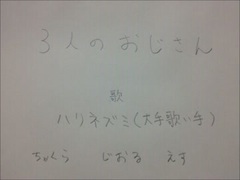 3人のおじさん
歌
ハリネズミ(大手歌い手)
ちゃくら じおる えす